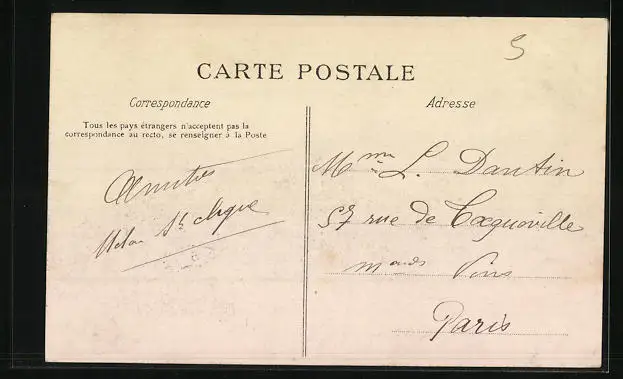 5
CARTE POSTALE
Correspondance
Adresse
Tous les pays étrangers n'acceptent pas la
correspondance au recto, se renseigner à la Poste
Amitiés
Mme L. Dautin
57 rue de Tocqueville
mands Vins
Paris